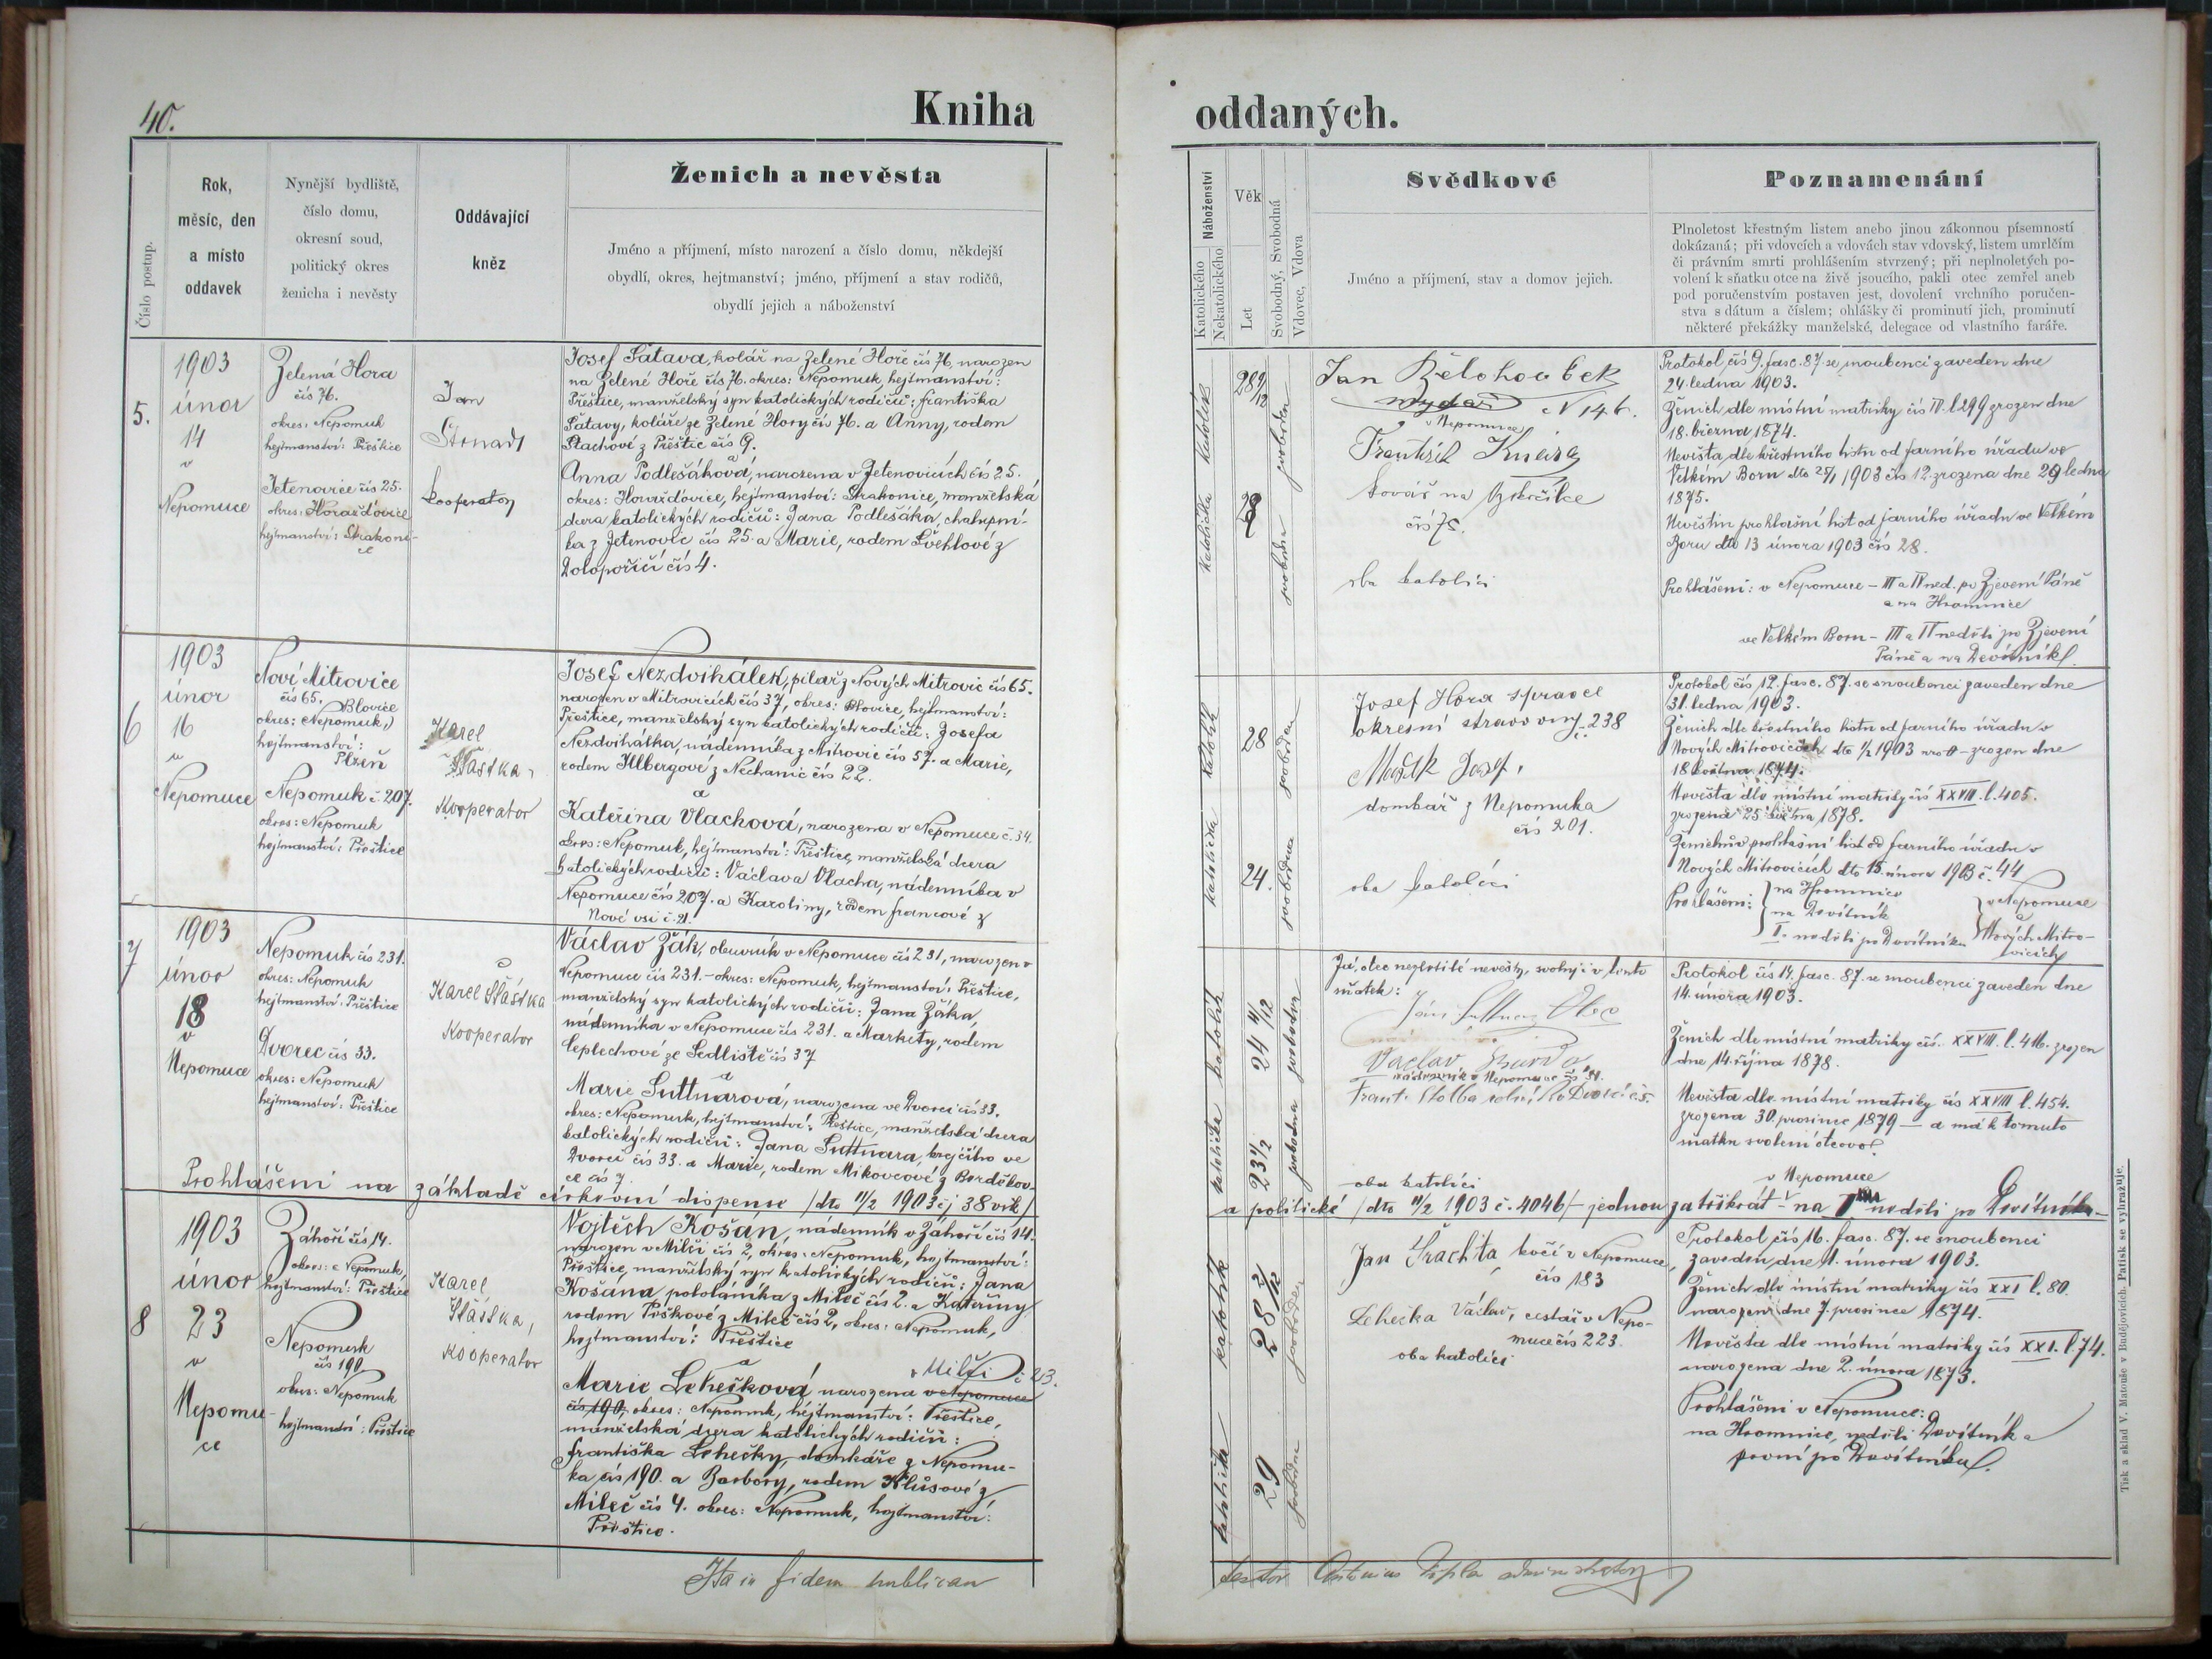 40.
Kniha
oddaných.
Číslo postup.
Rok,
měsíc, den
a místo
oddavek
Nynější bydliště,
číslo domu,
okresní soud,
politický okres
ženicha i nevěsty
Oddávající
kněz
Ženich a nevěsta
Jméno a příjmení, místo narození a číslo domu, někdejší
obydlí, okres, hejtmanství; jméno, příjmení a stav rodičů,
obydlí jejich a náboženství
Katolického
Nekatolického
Náboženství
Věk
Let
Svobodný, Svobodná
Vdovec, Vdova
Svědkové
Jméno a příjmení, stav a domov jejich.
Poznamenání
Plnoletost křestným listem anebo jinou zákonnou písemností
dokázaná; při vdovcích a vdovách stav vdovský, listem umrlčím
či právním smrti prohlášením stvrzený; při neplnoletých po-
volení k sňatku otce na živě jsoucího, pakli otec zemřel aneb
pod poručenstvím postaven jest, dovolení vrchního poručen-
stva s dátum a číslem; ohlášky či prominutí jich, prominutí
některé překážky manželské, delegace od vlastního faráře.
5.
1903
únor
14
v
Nepomuce
Zelená Hora
čís 76.
okres: Nepomuk
hejtmanství: Přeštice
Jetenovice čís 25.
okres: Horažďovice
hejtmanství: Strakoni-
ce
Jan
Strnad
kooperator
Josef Šatava, kolář na Zelené Hoře čís 76, narozen
na Zelené Hoře čís 76. okres: Nepomuk, hejtmanství:
Přeštice, manželský syn katolických rodičů: Františka
Šatavy, koláře ze Zelené Hory čís 76. a Anny, rodem
Stachové z Přeštic čís 9.
a
Anna Podlešáková, narozena v Jetenovicích čís 25.
okres: Horažďovice, hejtmanství: Strakonice, manželská
dcera katolických rodičů: Jana Podlešáka, chalupní-
ka z Jetenovic čís 25. a Marie, rodem Švehlové z
čís 4.
katolík
katolička
28 9/12
28
svoboden
svobodna
Jan Bělohoubek
N 146.
v Nepomuce
František
kovář na
čís 75.
oba katolíci
Protokol čís 9. fasc. 87. se snoubenci zaveden dne
24. ledna 1903.
Ženich dle místní matriky čís IV. l. 299 zrozen dne
18. března 1874.
Nevěsta dle křestního listu od farního úřadu ve
Velkém Boru dto 25/1 1903 čís 12. zrozena dne 29 ledna
1875.
Nevěstin prohlašní list od farního úřadu ve Velkém
Boru dto 13 února 1903 čís 28.
Prohlášeni: v Nepomuce – III a IV ned. po Zjevení Páně
a na Hromnice
ve Velkém Boru – III a IV neděli po Zjevení
Páně a na Devítník.
6
1903
únor
16
v
Nepomuce
Noví Mitrovice
čís 65.
Blovice
okres: (Nepomuk,)
hejtmanství:
Plzeň
Nepomuk č. 207.
okres: Nepomuk
hejtmanství: Přeštice
Karel
Šťastka,
Kooperator
Josef Nezdvihálek, pilař z Nových Mitrovic čís 65.
narozen v Mitrovicích čís 37, okres: Blovice, hejtmanství:
Přeštice, manželský syn katolických rodičů: Josefa
Nezdvihálka, nádenníka z Mitrovic čís 57. a Marie,
rodem Illbergové z Nechanic čís 22.
a
Kateřina Vlachová, narozena v Nepomuce č. 34.
okres: Nepomuk, hejtmanství: Přeštice, manželská dcera
katolických rodičů: Václava Vlacha, nádenníka v
Nepomuce čís 207. a Karoliny, rodem Francové z
Nové vsi č. 21.
katolík
katolička
28
24.
svoboden
svobodna
Josef Hora správce
okresní stravovny č. 238
Mašek Josef,
domkář z Nepomuka
čís 201.
oba katolíci
Protokol čís 12. fasc. 87. se snoubenci zaveden dne
31. ledna 1903.
Ženich dle křestního listu od farního úřadu v
Nových Mitrovicích dto 1/2 1903 – zrozen dne
18 května 1874.
Nevěsta dle místní matriky čís XXVIII. l. 405.
zrozena 25. května 1878.
Ženichův prohlašní list od farního úřadu v
Nových Mitrovicích dto 15. února 1903 č. 44
Prohlášeni:
na Hromnice
na Devítník
I. neděli po Devítníku
v Nepomuce
a
Nových Mitro-
vicích
7
1903
únor
18
v
Nepomuce
Nepomuk čís 231.
okres: Nepomuk
hejtmanství: Přeštice
Dvorec čís 33.
okres: Nepomuk
hejtmanství: Přeštice
Karel Šťastka
Kooperator
Václav Žák, obuvník v Nepomuce čís 231, narozen v
Nepomuce čís 231. – okres: Nepomuk, hejtmanství: Přeštice,
manželský syn katolických rodičů: Jana Žáka,
nádenníka v Nepomuce čís 231. a Markéty, rodem
Ceplechové ze Sedliště čís 37
a
Marie Suttnarová, narozena ve Dvorci čís 33.
okres: Nepomuk, hejtmanství: Přeštice, manželská dcera
katolických rodičů: Jana Suttnara, krejčího ve
Dvorci čís 33. a Marie, rodem Mikovcové z Borděkov-
ce čís 7.
katolík
katolička
24 4/12
23 1/2
svoboden
svobodna
Já, otec nezletilé nevěsty, svoluji v tento
sňatek:
Jan Suttnar Otec
Václav
nádenník v Nepomuce
Frant. Stolba rolník ze Dvorce č. 5.
oba katolíci
Protokol čís 14. fasc. 87. se snoubenci zaveden dne
14. února 1903.
Ženich dle místní matriky čís. XXVIII. l. 416. zrozen
dne 14. října 1878.
Nevěsta dle místní matriky čís XXVIII l. 454.
zrozena 30. prosince 1879 – a má k tomuto
sňatku svolení otcovo.
v Nepomuce
Prohlášeni na základě církevní dispense /dto 11/2 1903 čj 38 vik/
a politické /dto 11/2 1903 č. 4046/ – jednou za třikrát – na I neděli po Devítníku –
8
1903
únor
23
v
Nepomu-
ce
Záhoří čís 14.
okres: Nepomuk,
hejtmanství: Přeštice
Nepomuk
čís 190
okres: Nepomuk
hejtmanství: Přeštice
Karel
Šťastka,
Kooperator
Vojtěch Košan, nádenník v Záhoří čís 14.
narozen v Milči čís 2, okres: Nepomuk, hejtmanství:
Přeštice, manželský syn katolických rodičů: Jana
Košana, pololáníka z Mileč čís 2. a Kateřiny
rodem Piškové z Mileč čís 2, okres: Nepomuk,
hejtmanství: Přeštice
a
v Milči č. 23.
Marie Lehečková narozena v Nepomuce
čís 190, okres: Nepomuk, hejtmanství: Přeštice,
manželská dcera katolických rodičů:
Františka Lehečky, domkáře z Nepomu-
ka čís 190. a Barbory, rodem Klůsové z
Mileč čís 4. okres: Nepomuk, hejtmanství:
Přeštice.
katolík
katolička
28 2/12
29
svoboden
svobodna
Jan Šrachta kočí v Nepomuce,
čís 183
Lehečka Václav, cestář v Nepo-
muce čís 223.
oba katolíci
Protokol čís 16. fasc. 87. se snoubenci
zaveden dne 1. února 1903.
Ženich dle místní matriky čís XXI l. 80.
narozen dne 7. prosince 1874.
Nevěsta dle místní matriky čís XXI. l. 74.
narozena dne 2. února 1873.
Prohlášeni v Nepomuce:
na Hromnice, neděli Devítník a
první po Devítníku.
Ita in fidem publicam
testor Antonius administrator
Tisk a sklad V. Matouše v Budějovicích. Patisk se vyhražuje.